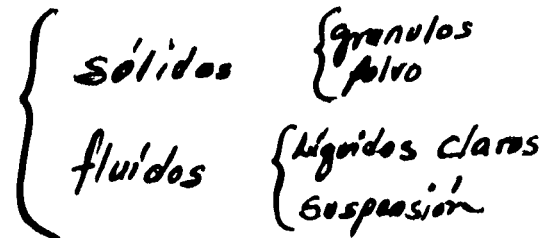 sólidos
granulos
polvo
fluídos
Líquidos claros
suspensión